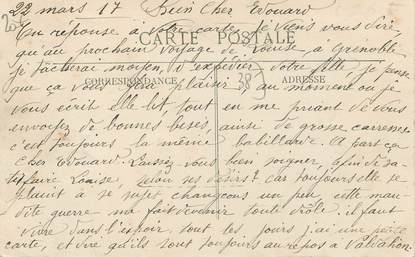 22 mars 17 Bien Cher Edouard
En réponse à votre carte je viens vous dire,
CARTE POSTALE
qu'au prochain voyage de Louise, à Grenoble
je tacherai moyen, d'expédier votre fille, je pense
CORRESPONDANCE ADRESSE
que ça vous fera plaisir, au moment où je
38
vous écrit elle lit, tout en me priant de vous
envoyer de bonnes bises, ainsi de grosse carresses
c'est toujours la même babillarde. A part ça
Cher Edouard. Laissez vous bien soigner, afin de sa-
tisfaire Louise, selon ses désirs? car toujours elle se
plaint à ce sujet changeons un peu, cette mau-
dite guerre me fait devenir toute drôle, il faut
vivre dans l'espoir. tout les jours j'ai une petite
carte, et vre qu'ils sont toujours au repos à Valvation.